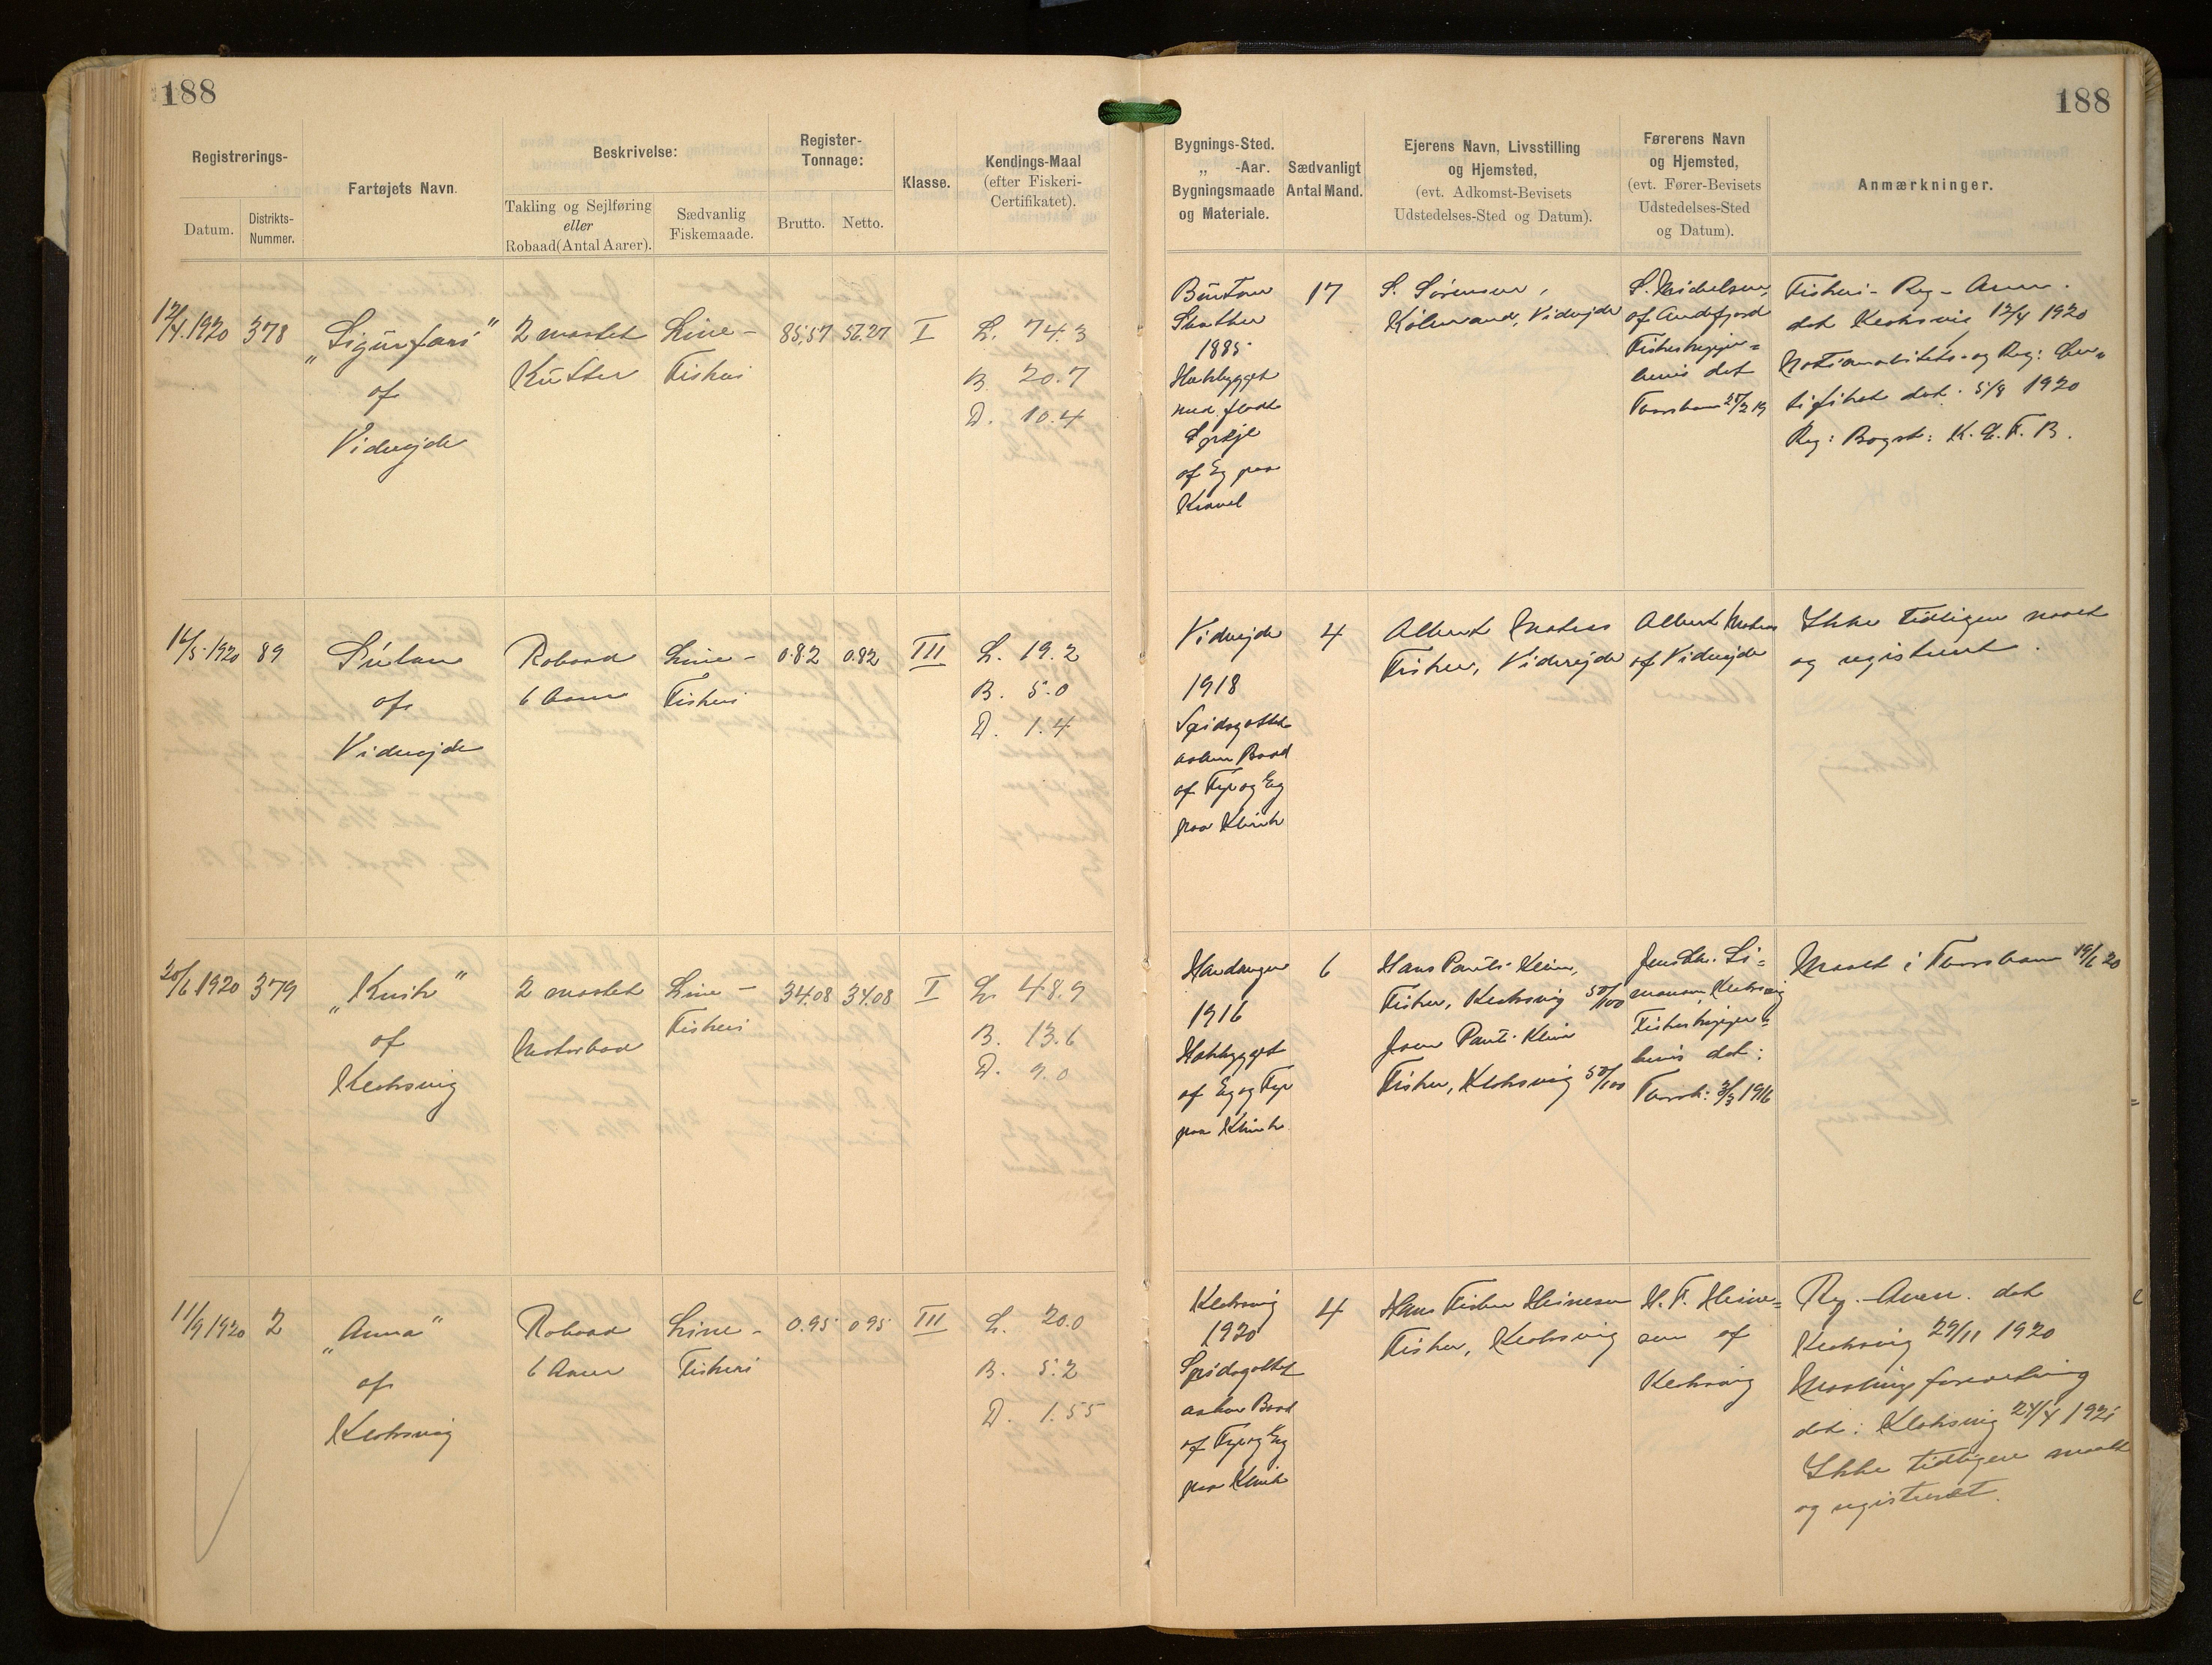 188
188
Registrerings-
Datum.
Distrikts-
Nummer.
Fartøjets Navn.
Beskrivelse:
Takling og Sejlføring
eller
Robaad (Antal Aarer).
Sædvanlig
Fiskemaade.
Register-
Tonnage:
Brutto.
Netto.
Klasse.
Kendings-Maal
(efter Fiskeri-
Certifikatet).
Bygnings-Sted.
„ -Aar.
Bygningsmaade
og Materiale.
Sædvanligt
Antal Mand.
Ejerens Navn, Livsstilling
og Hjemsted,
(evt. Adkomst-Bevisets
Udstedelses-Sted og Datum).
Førerens Navn
og Hjemsted,
(evt. Fører-Bevisets
Udstedelses-Sted
og Datum).
Anmærkninger.
12/4 1920
378
„Sigurfari"
of
Viderejde
2 mastet
Kutter
Line-
Fiskeri
85,57
56.27
I
L. 74.3
B. 20.7
D. 10.4
1885
med fladt
Spejl
af Eg paa
Kravel
17
S. Sørensen,
Viderejde
S. Michelsen,
af Andefjord
bevis dat
Thorshavn
Fiskeri-Reg-Anm.
dat Klaksvig 12/4 1920
Nationalitets- og Reg: Cer-
tifikat dat. 5/8 1920
Reg: Bogst: K. L. F. B.
16/5 1920
89
Sulan
of
Viderejde
Robaad
6 Aarer
Line-
Fiskeri
0.82
0.82
III
L. 19.2
B. 5.0
D. 1.4
Viderejde
1918
Spidsgattet
aaben Baad
af Fyr og Eg
paa Klink
4
Albert
Fisker, Viderejde
Albert
af Viderejde
Ikke tidligere maalt
og registreret.
20/6 1920
379
„Knik"
of
Klaksvig
2 mastet
Motorbaad
Line-
Fiskeri
34.08
34.08
I
L. 48.9
B. 13.6
D. 9.0
Hardanger
1916
Hækbygget
af Eg og Fyr
paa Klink
6
Hans Pauli Klein,
Fisker, Klaksvig 50/100
Joen Pauli Klein
Fisker, Klaksvig 50/100
Si-
monsen, Klaksvig
bevis dat:
Thorsh: 3/3 1916
Maalt i Thorshavn 19/6 20
11/9 1920
2
„Anna"
of
Klaksvig
Robaad
6 Aarer
Line-
Fiskeri
0.95
0.95
III
L. 20.0
B. 5.2
D. 1.55
Klaksvig
1920
Spidsgattet
aaben Baad
af Fyr og Eg
paa Klink
4
Hans Fisker Heinesen
Fisker, Klaksvig
H. F. Heine-
sen of
Klaksvig
Reg.-Anm. dat
Klaksvig 29/11 1920
Maalings
dat: Klaksvig 24/4 1921
Ikke tidligere maalt
og registreret.